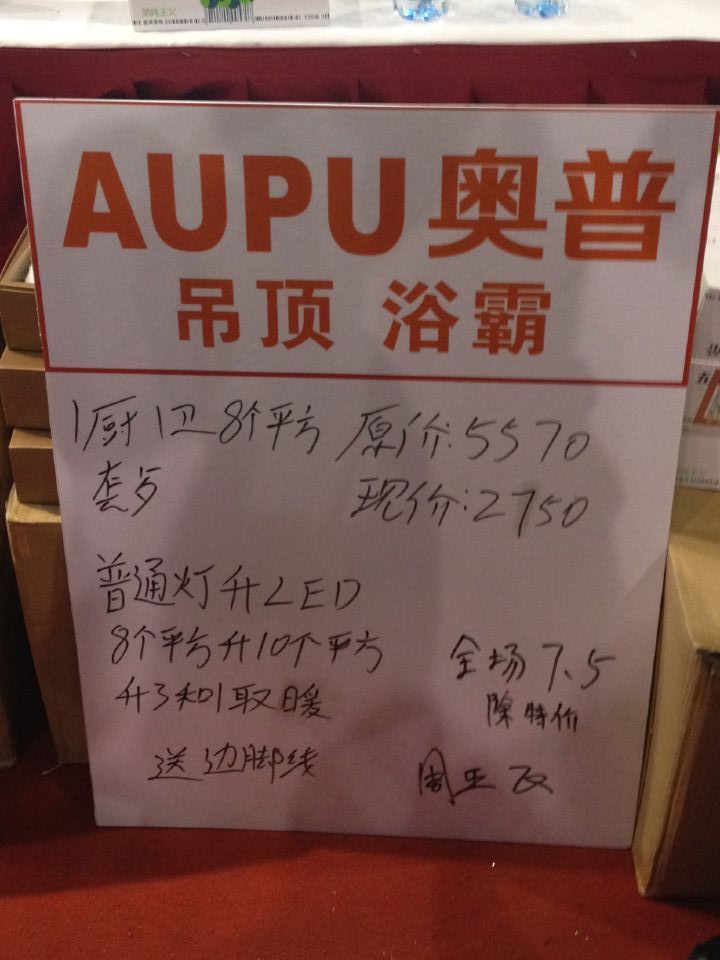 AUPU奥普
吊顶 浴霸
1厨1卫8个平方 原价:5570
套式 现价:2750
普通灯升LED
8个平方升10个平方
升3和1取暖
送边脚线
全场7.5
除特价